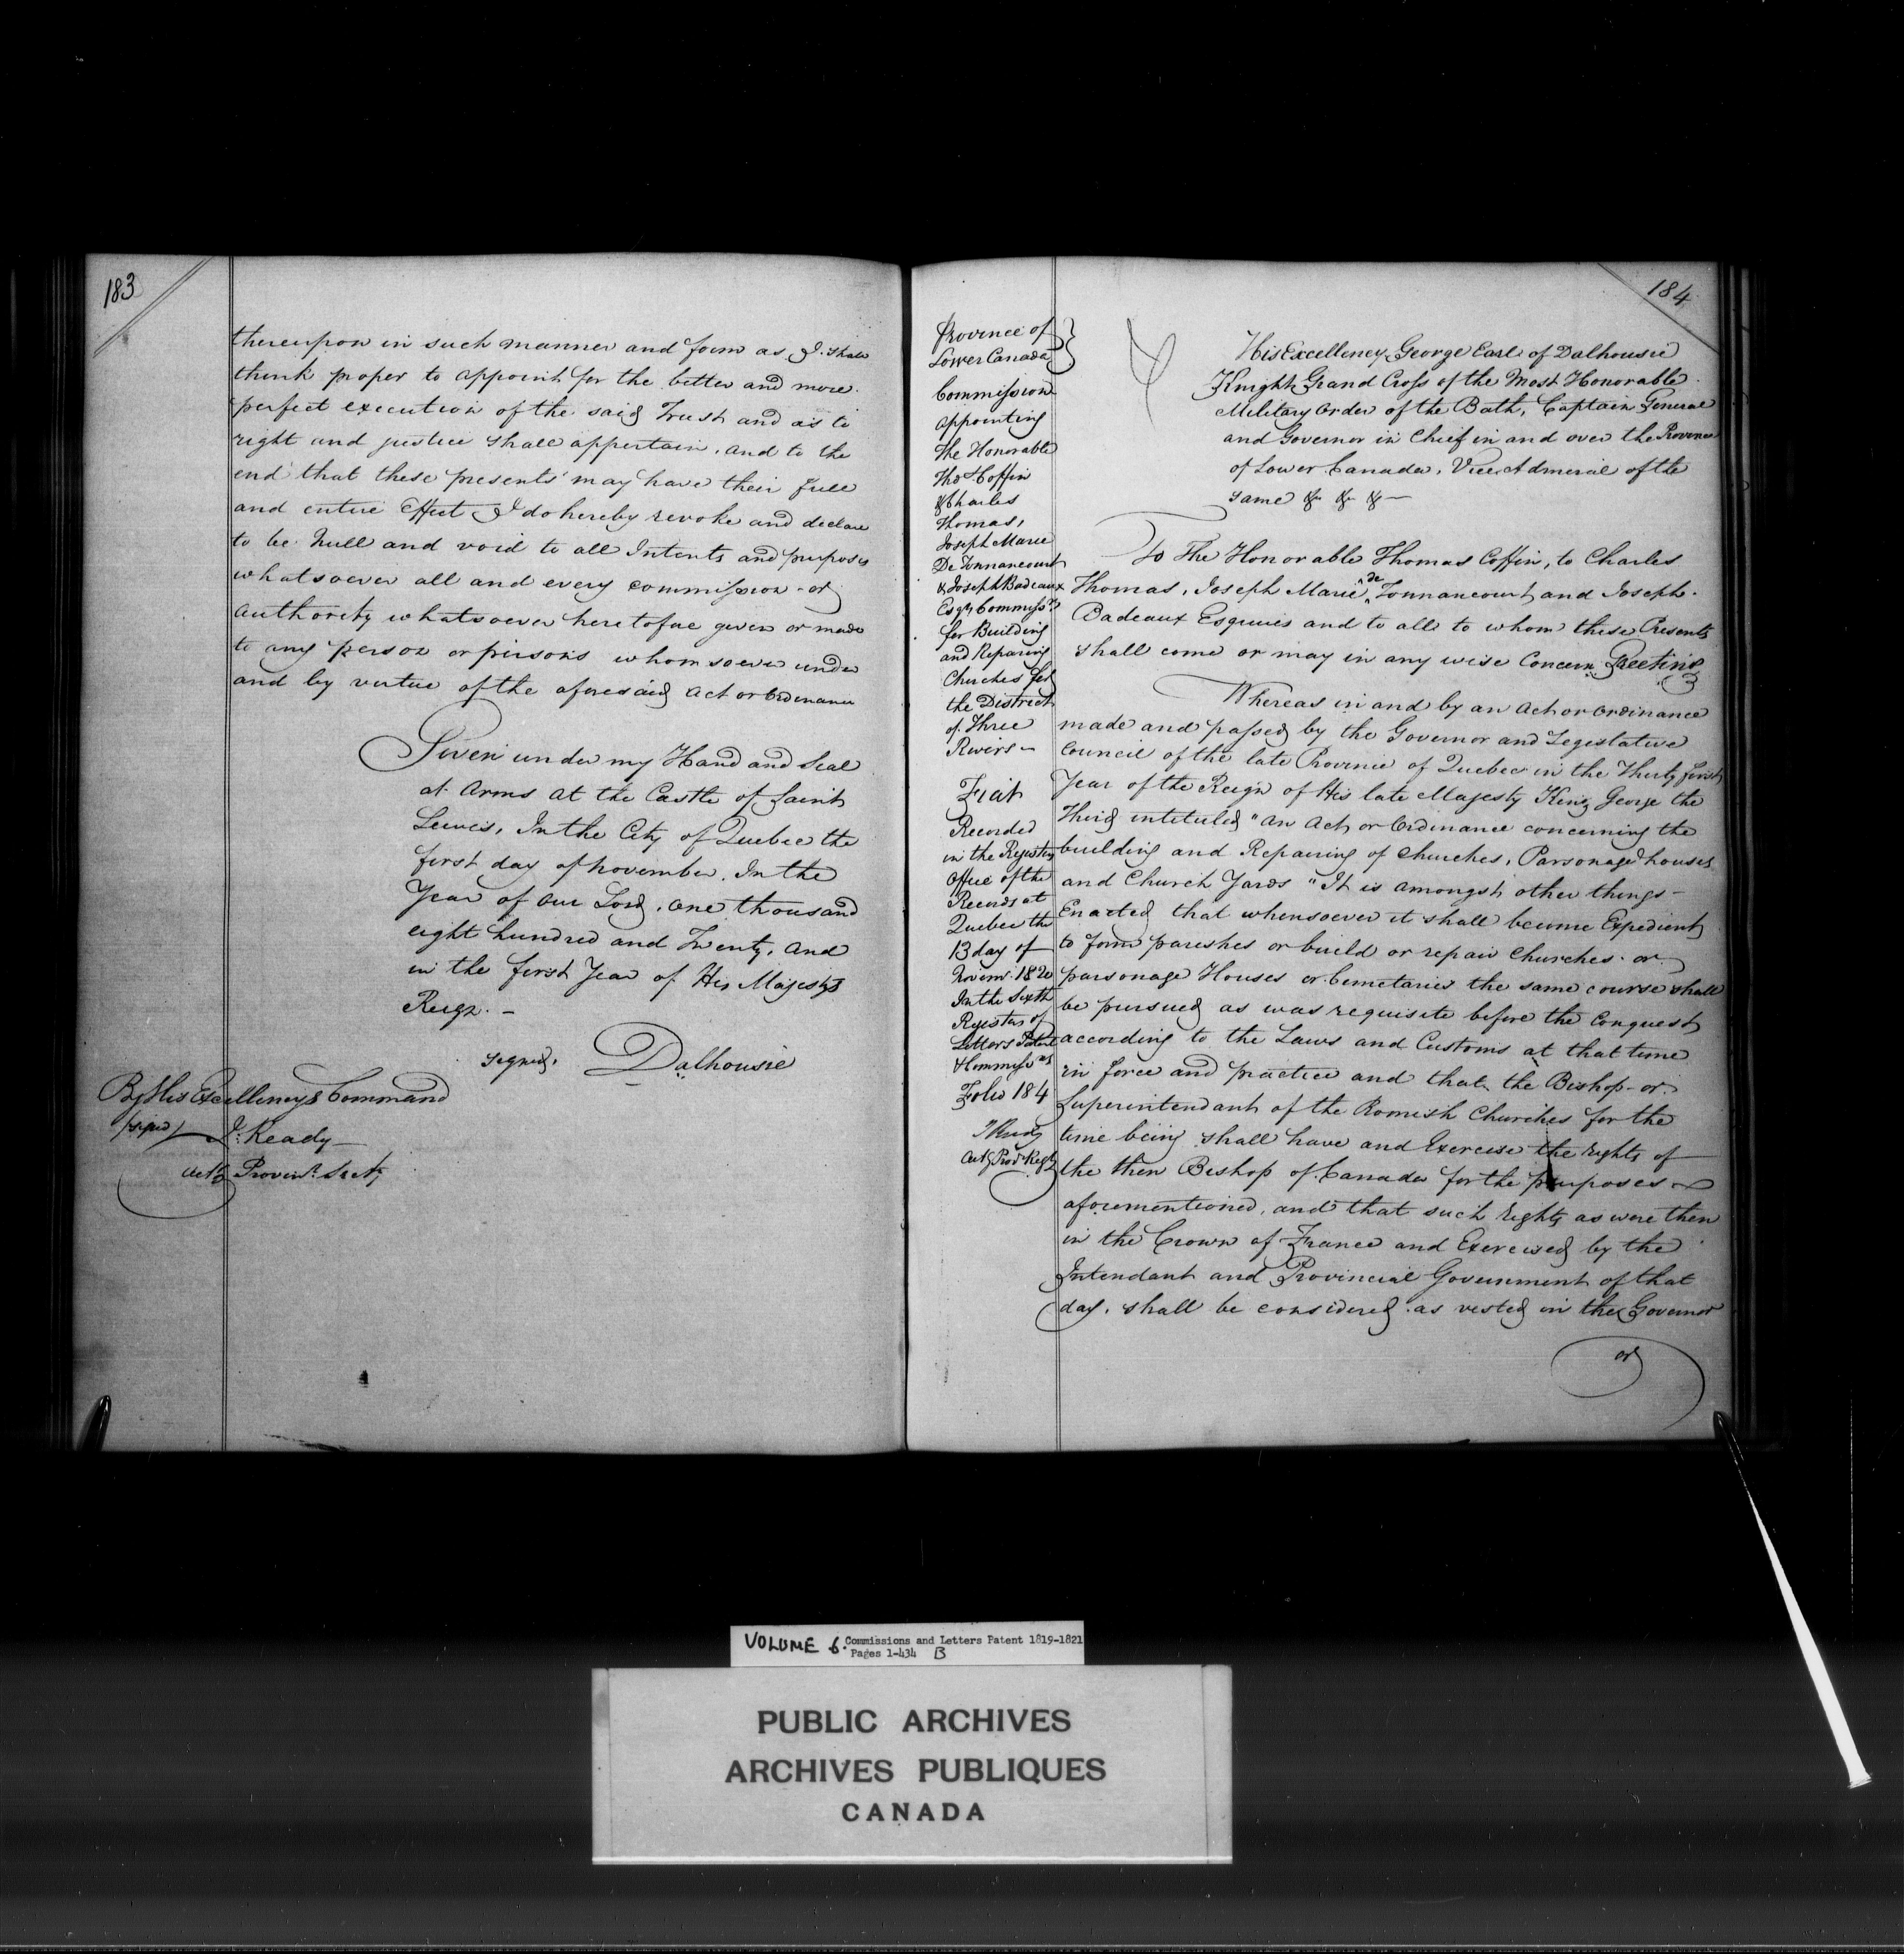 183
thereupon in such manner and form as I shall
think proper to appoint for the better and more
perfect execution of the said Trust and as to
right and justice shall appertain, and to the
end that these presents may have their full
and entire Effect I do hereby revoke and declare
to be Null and void to all Intents and purposes
whatsoever all and every commission or
authority whatsoever heretofore given or made
to any person or persons whomsoever under
and by vertue of the aforesaid Act or Ordinance
Given under my Hand and Seal
at Arms at the Castle of Saint
Lewis, In the City of Quebec the
first day of November. In the
Year of Our Lord, One thousand
eight hundred and Twenty, and
in the first Year of His Majestys
Reign. -
signed, Dalhousie
By His Excellency's Command
/signed/ J. Ready
Actg Provinl. Secty
184
Province of
Lower Canada
Commission
Appointing
The Honorable
Thos Coffin
& Charles
Thomas,
Joseph Marie
De Tonnancourt
& Joseph Badeaux
Esqrs Commissrs
for Building
and Repairing
Churches for
the District
of Three
Rivers -
Fiat
Recorded
in the Registry
Office of the
Records at
Quebec the
13 day of
Novemr. 1820
In the Sixth
Register of
Letters Patent
& Commissns
Folio 184
J Ready
Actg Provl Regr
His Excellency George Earl of Dalhousie
Knight Grand Cross of the Most Honorable
Military Order of the Bath, Captain General
and Governor in Chief in and over the Province
of Lower Canada, Vice Admiral of the
same &c &c &c -
To The Honorable Thomas Coffin, to Charles
Thomas, Joseph Marie de Tonnancourt and Joseph
Badeaux Esquires and to all to whom these Presents
shall come or may in any wise Concern Greeting
Whereas in and by an Act or Ordinance
made and passed by the Governor and Legislative
Council of the late Province of Quebec in the Thirty first
Year of the Reign of His late Majesty King George the
Third intituled "An Act or Ordinance concerning the
building and Repairing of Churches, Parsonage houses
and Church Yards "It is amongst other things -
Enacted that whensoever it shall become Expedient
to form parishes or build or repair Churches or
parsonage Houses or Cemetaries the same course shall
be pursued as was requisite before the Conquest
according to the Laws and Customs at that time
in force and practice and that the Bishop or
Superintendant of the Romish Churches for the
time being shall have and Exercise the rights of
the then Bishop of Canada for the purposes
aforementioned, and that such rights as were then
in the Crown of France and Exercised by the
Intendant and Provincial Government of that
day, shall be considered as vested in the Governor
or
VOLUME 6. Commissions and Letters Patent 1819-1821
Pages 1-434 B
PUBLIC ARCHIVES
ARCHIVES PUBLIQUES
CANADA